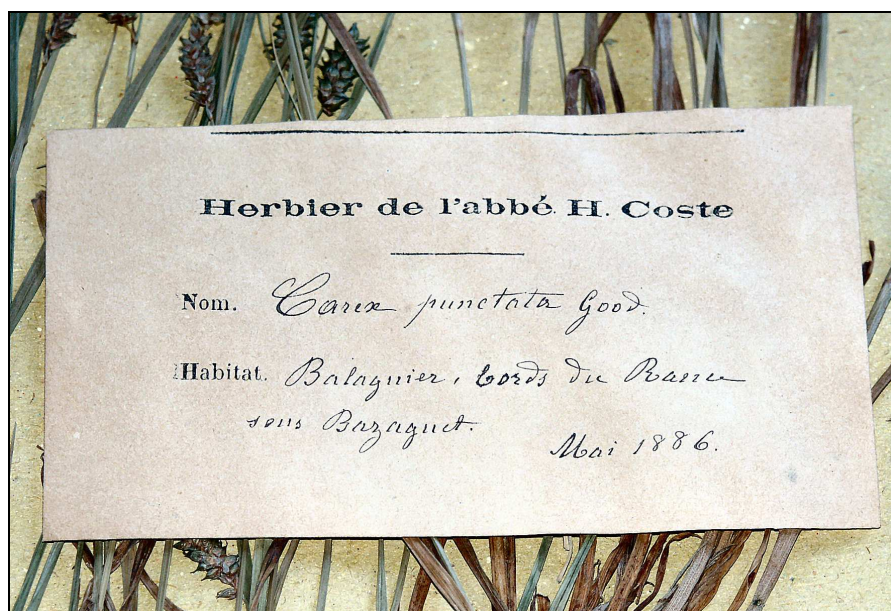 Herbier de l'abbé H. Coste
Nom. Carex punctata Good.
Habitat. Balaguier, bords du Rance
sous Bazaguet.
Mai 1886.